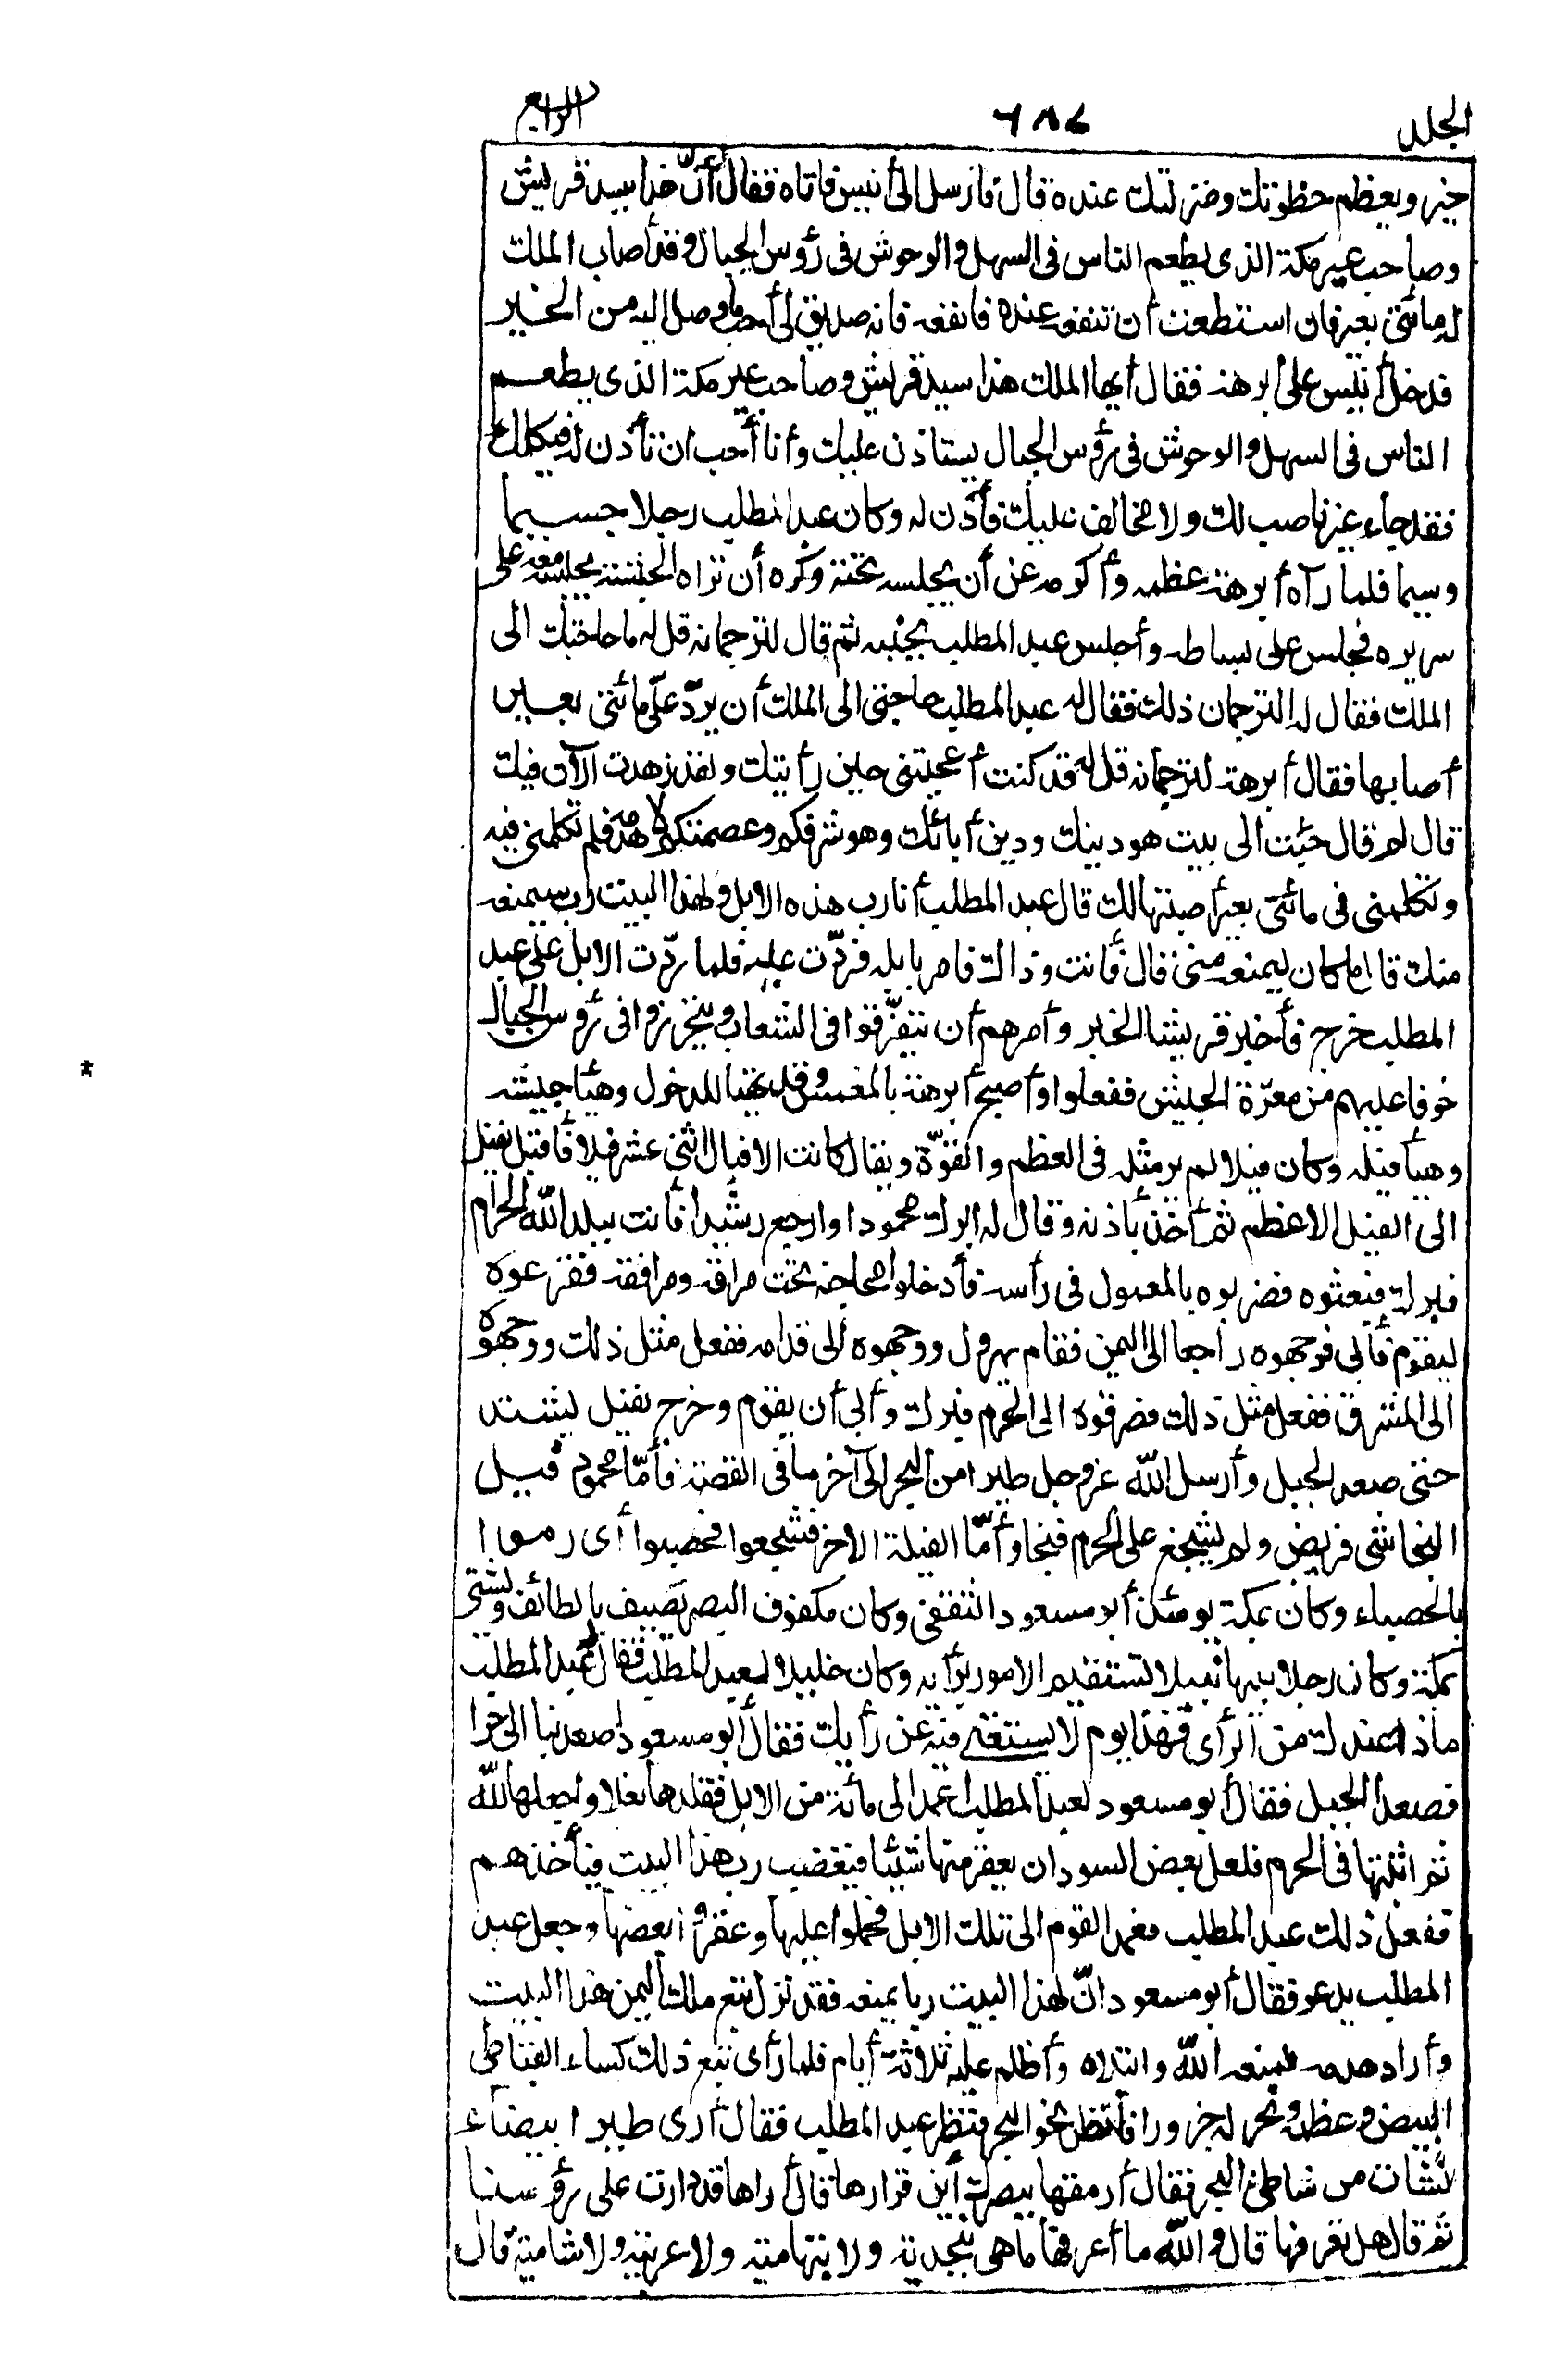 الجلد ٦٨٧ الرابع
خير ويعظم حظوتك ومنزلتك عنده قال فأرسل الى أنيس فأتاه فقال أنّ هذا سيد قريش
وصاحب عير مكة الذى يطعم الناس فى السهل والوحوش فى رؤس الجبال وقد أصاب الملك
له مائتى بعير فان استطعت أن تنفعه عنده فانفعه فانه صديق لى أحب ما وصل اليه من الخير
فدخل أنيس على أبرهة فقال أيها الملك هذا سيد قريش وصاحب عير مكة الذى يطعم
الناس فى السهل والوحوش فى رؤس الجبال يستاذن عليك وأنا أحب ان تأذن له فيكلمك
فقد جاء غير ناصب لك ولا مخالف عليك فأذن له وكان عبد المطلب رجلا جسيما
وسيما فلما رآه أبرهة عظمه وأكرمه عن أن يجلسه تحته وكره أن تراه الحبشة يجلسه معه على
سريره فجلس على بساطه وأجلس عبد المطلب بجنبه ثم قال لترجمانه قل له ما حاجتك الى
الملك فقال له الترجمان ذلك فقال له عبد المطلب حاجتى الى الملك أن يردّ علىّ مائتى بعير
أصابها فقال أبرهة لترجمانه قل له قد كنت أعجبتنى حين رأيتك ولقد زهدت الآن فيك
قال لم قال جئت الى بيت هو دينك ودين أبائك وهو شرفكم وعصمتكم لا هدمه فلم تكلمنى فيه
وتكلمنى فى مائتى بعير أصبتها لك قال عبد المطلب أنا رب هذه الابل ولهذا البيت رب سيمنعه
منك قال ما كان ليمنعه منى قال فأنت وذاك فامر بابله فردّت عليه فلما ردّت الابل على عبد
المطلب خرج فأخبر قريشا الخبر وأمرهم أن يتفرّقوا فى الشعاب ويتحرزوا فى رؤس الجبال
خوفا عليهم من معرّة الجيش ففعلوا وأصبح أبرهة بالمغمس وقد تهيا للدخول وهيأ جيشه
وهيأ فيله وكان فيلا لم ير مثله فى العظم والقوّة ويقال كانت الافيال اثنى عشر فيلا فأقبل نفيل
الى الفيل الاعظم ثم أخذ بأذنه وقال له ابرك محمودا وارجع رشيدا فأنت ببلد الله الحرام
فبرك فبعثوه فضربوه بالمعول فى رأسه فأدخلوا محاجنه تحت مراقه ومرافقه ففزعوه
ليقوم فأبى فوجهوه راجعا الى اليمن فقام يهرول ووجهوه الى قدامه ففعل مثل ذلك ووجهوه
الى المشرق ففعل مثل ذلك فصرفوه الى الحرم فبرك وأبى أن يقوم وخرج نفيل يشتد
حتى صعد الجبل وأرسل الله عز وجل طيرا من البحر الى آخر ما فى القصة فأمّا محمود فيل
النجاشى فربض ولم يشجع على الحرم فنجا وأمّا الفيلة الاخر فشجعوا فحصبوا أى رموا
بالحصباء وكان بمكة يومئذ أبو مسعود الثقفى وكان مكفوف البصر يصيف بالطائف ويشتى
بمكة وكان رجلا نبيها نبيلا تستقيم الامور برأيه وكان خليلا لعبد المطلب فقال عبد المطلب
ماذا عندك من الرأى فهذا يوم لا يستغنى فيه عن رأيك فقال أبو مسعود اصعد بنا الى حرا
فصعد الجبل فقال أبو مسعود لعبد المطلب اعمد الى مائة من الابل فقلدها نعلا واجعلها لله
ثم اثبتها فى الحرم فلعل بعض السودان يعقر منها شيئا فيغضب رب هذا البيت فيأخذهم
ففعل ذلك عبد المطلب فعمد القوم الى تلك الابل فحملوا عليها وعقروا بعضها وجعل عبد
المطلب يدعو فقال أبو مسعود انّ لهذا البيت ربا يمنعه فقد نزل تبع ملك اليمن هذا البيت
وأراد هدمه فمنعه الله وابتلاه وأظلم عليه ثلاثة أيام فلما رأى تبع ذلك كساه القباطى
البيض وعظمه ونحر له جزورا فأنظر نحو البحر فنظر عبد المطلب فقال أرى طيرا بيضاء
نشأت من شاطئ البحر فقال أرمقها ببصرك أين قرارها قال أراها قد دارت على رؤسنا
ثم قال هل تعرفها قال والله ما أعرفها ما هى بنجدية ولا بتهامية ولا عربية ولا شامية قال